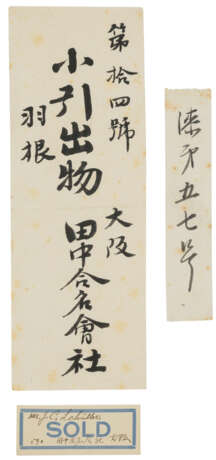 第拾四號
小引出物
羽根
大阪
田中合名會社
漆才五七号
SOLD